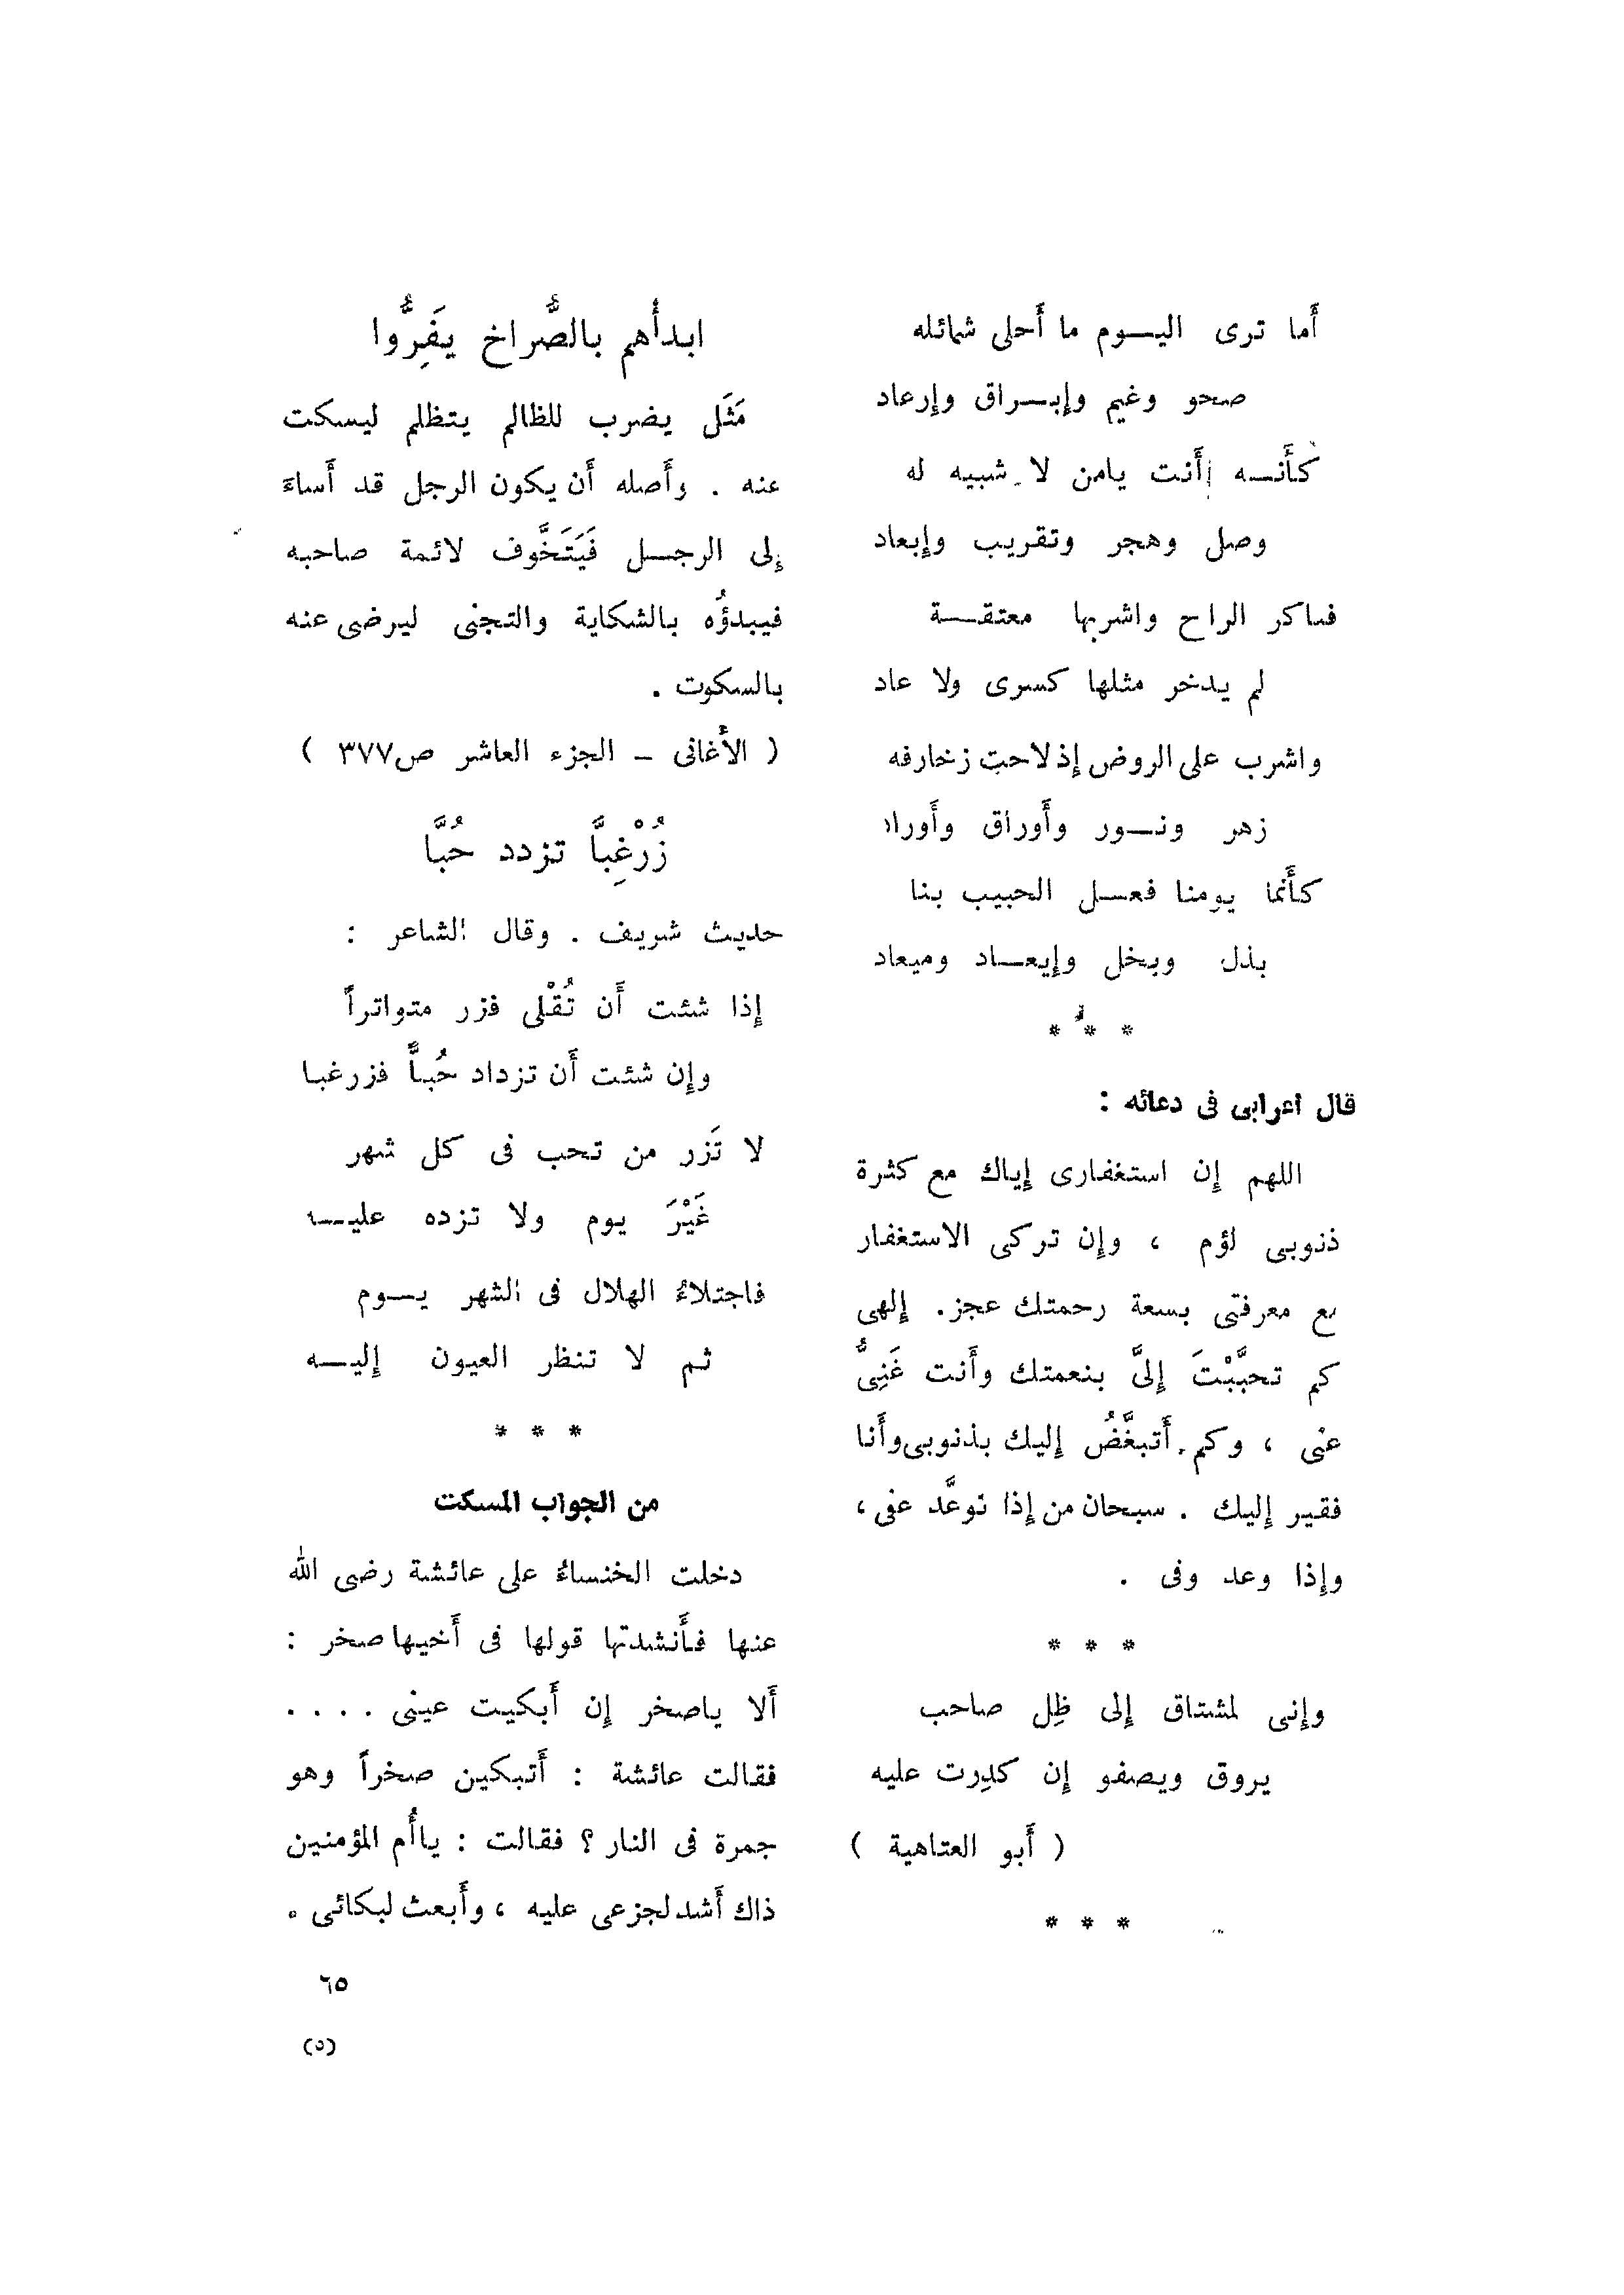 أَما ترى اليـــوم ما أَحلى شمائله
صحو وغيم وإبـــراق وإرعاد
كأَنـــه أَنت يامن لا شبيه له
وصل وهجر وتقريب وإبعاد
فباكر الراح واشربها معتقـــة
لم يدخر مثلها كسرى ولا عاد
واشرب على الروض إذ لاحت زخارفه
زهر ونـــور وأَوراق وأَوراد
كأَنما يومنا فعـــل الحبيب بنا
بذل وبخل وإيعـــاد وميعاد
* * *
قال اعرابى فى دعائه :
اللهم إن استغفارى إياك مع كثرة
ذنوبى لؤم ، وإن تركى الاستغفار
مع معرفتى بسعة رحمتك عجز. إلهى
كم تحبَّبْتَ إلىَّ بنعمتك وأَنت غَنِىٌّ
عنى ، وكم أَتبغَّضُ إليك بذنوبى وأَنا
فقير إليك . سبحان من إذا توعَّد عفى ،
وإذا وعد وفى .
* * *
وإنى لمشتاق إلى ظِل صاحب
يروق ويصفو إن كدِرت عليه
( أَبو العتاهية )
* * *
ابدأْهم بالصُّراخ يَفِرُّوا
مَثَل يضرب للظالم يتظلم ليسكت
عنه . وأَصله أَن يكون الرجل قد أَساءَ
إلى الرجـــل فَيَتَخَّوف لائمة صاحبه
فيبدؤُه بالشكاية والتجنى ليرضى عنه
بالسكوت .
( الأَغانى – الجزء العاشر ص٣٧٧ )
زُرْغِبًّا تزدد حُبًّا
حديث شريف . وقال الشاعر :
إذا شئت أَن تُقْلى فزر متواتراً
وإن شئت أَن تزداد حُبًّا فزر غبا
لا تَزر من تحب فى كل شهر
غَيْرَ يوم ولا تزده عليـــه
فاجتلاءُ الهلال فى الشهر يـــوم
ثم لا تنظر العيون إليـــه
* * *
من الجواب المسكت
دخلت الخنساءُ على عائشة رضى الله
عنها فأَنشدتها قولها فى أَخيها صخر :
أَلا ياصخر إن أَبكيت عينى . . . .
فقالت عائشة : أَتبكين صخراً وهو
جمرة فى النار ؟ فقالت : ياأُم المؤمنين
ذاك أَشد لجزعى عليه ، وأَبعث لبكائى .
٦٥
(٥)